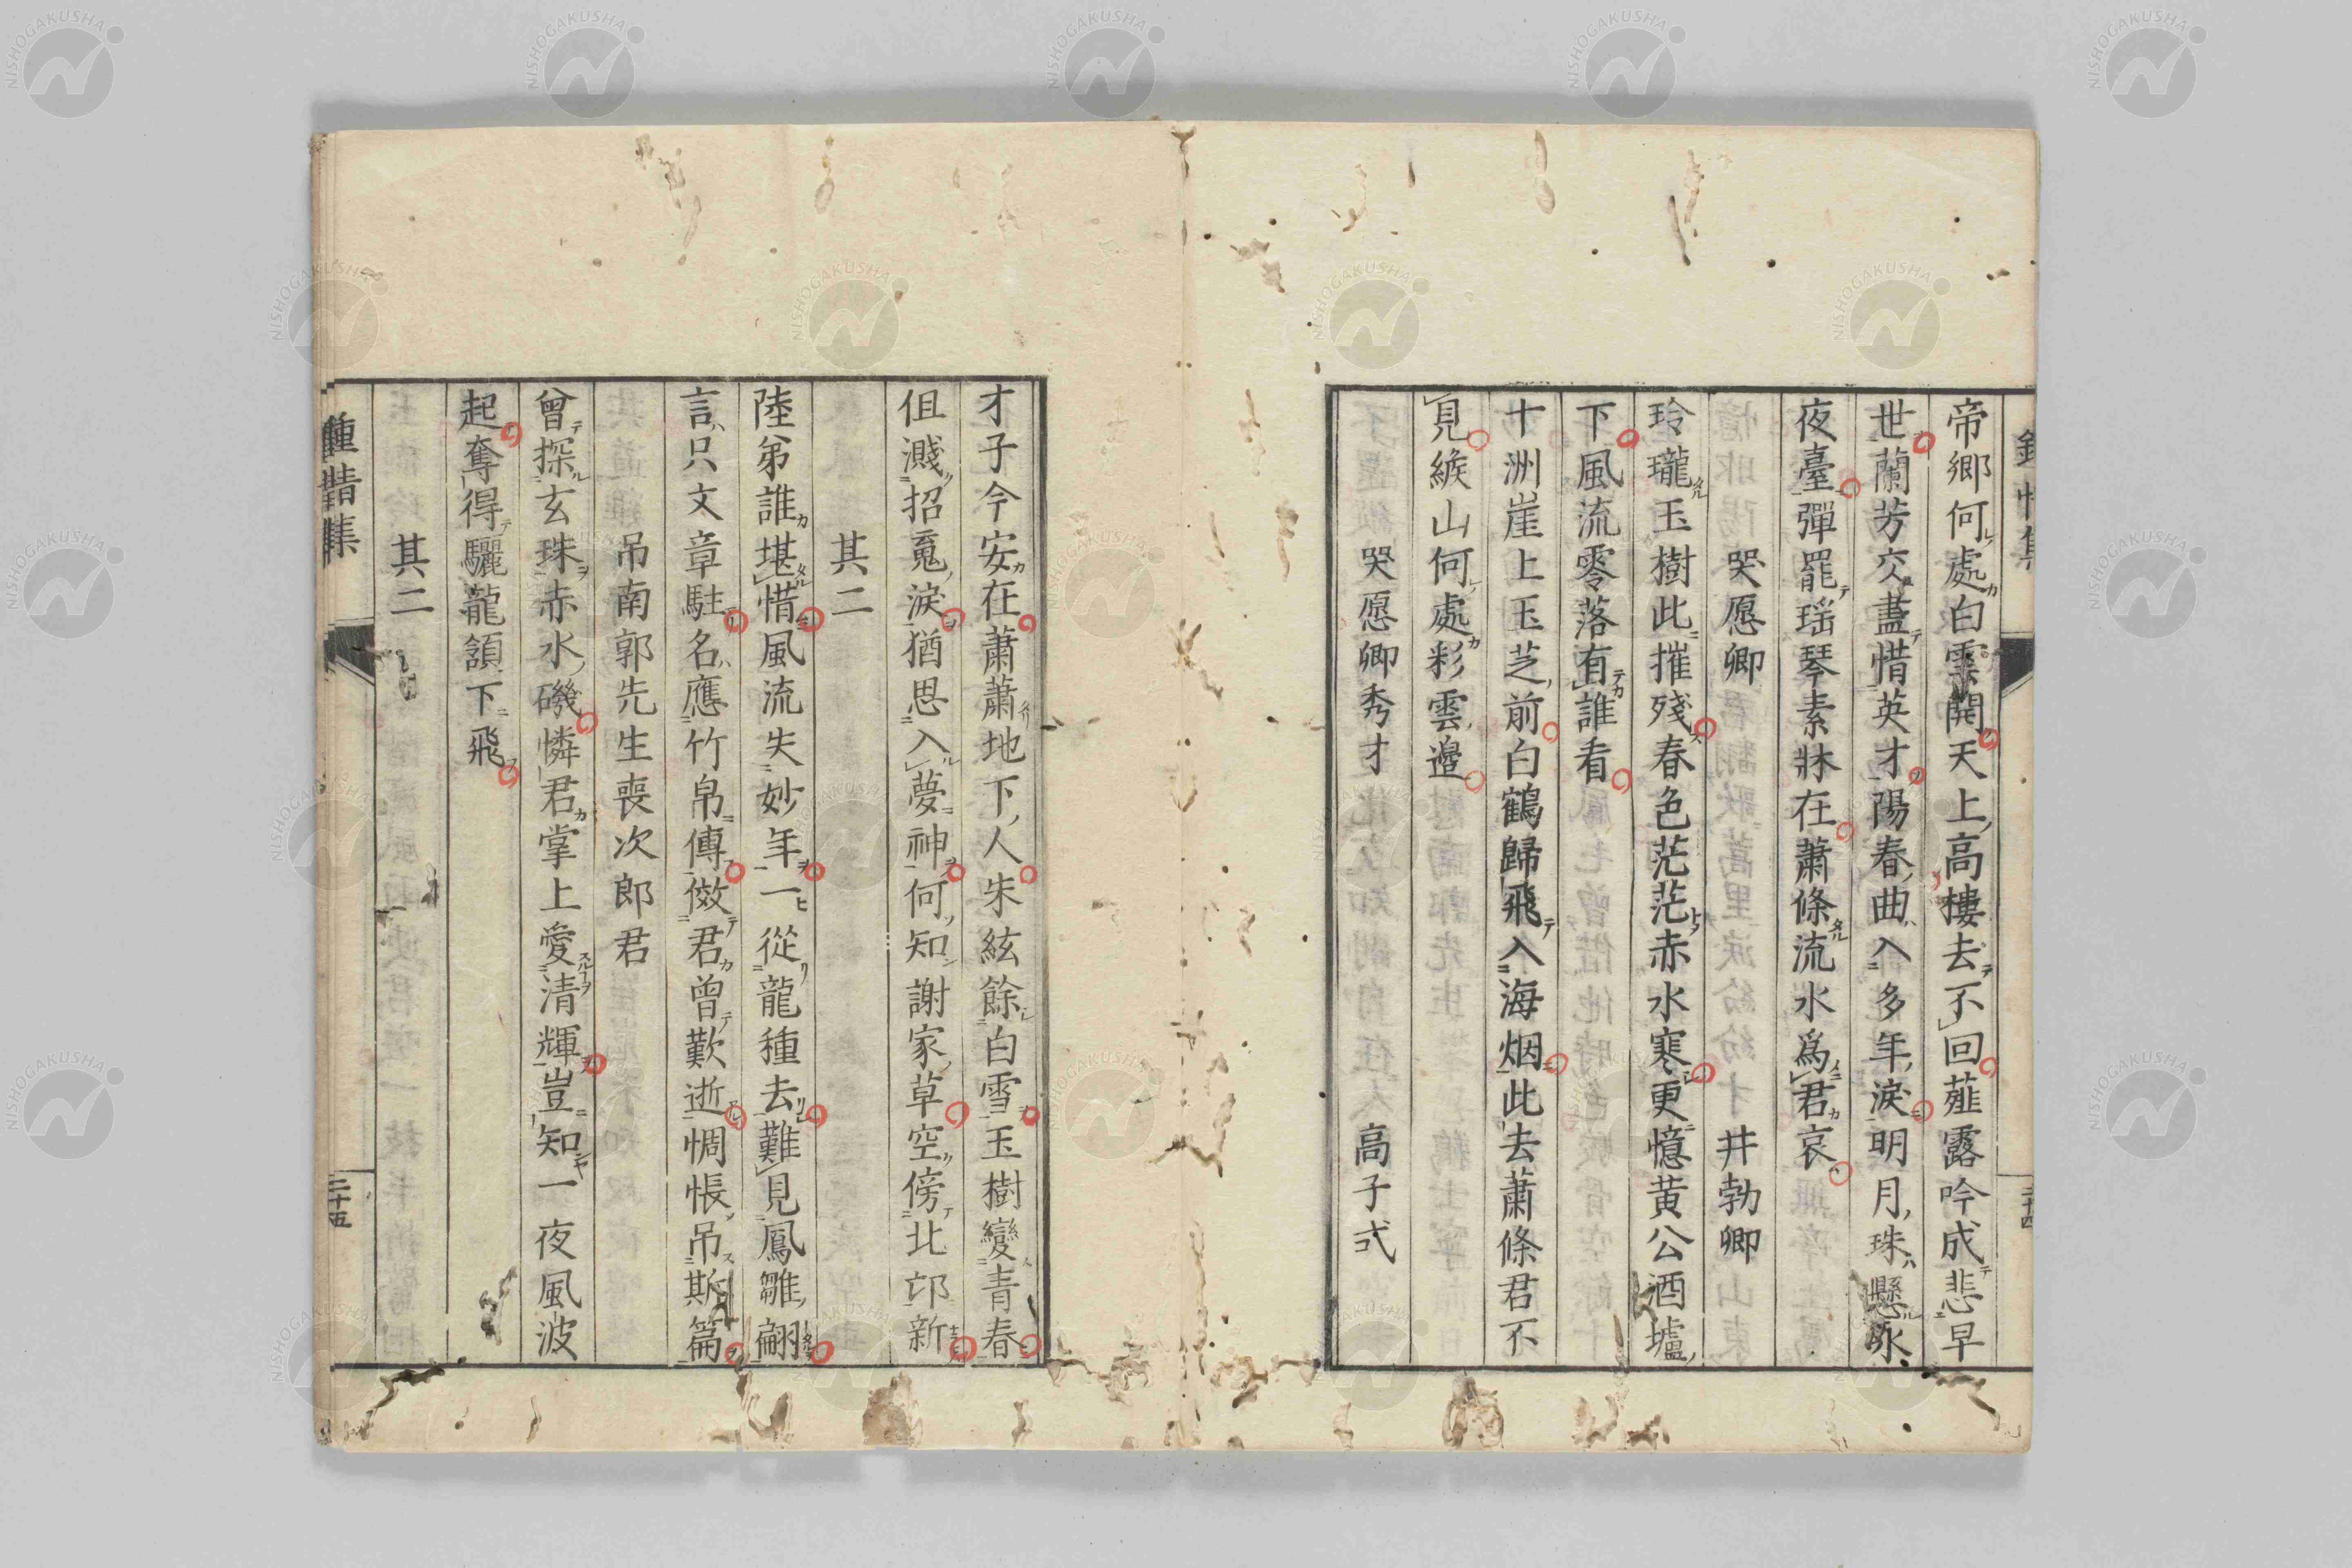 帝鄉何處白雲開天上高樓去不回薤露吟成悲早
世蘭芳交盡惜英才陽春曲入多年淚明月珠懸永
夜臺彈罷瑤琴素牀在蕭條流水爲君哀
哭愿卿 井勃卿
玲瓏玉樹此摧殘春色茫茫赤水寒更憶黃公酒壚
下風流零落有誰看
十洲崖上玉芝前白鶴歸飛入海烟此去蕭條君不
見緱山何處彩雲邊
哭愿卿秀才 高子式
二十四
才子今安在蕭蕭地下人朱絃餘白雪玉樹變青春
但濺招䰟淚猶思入夢神何知謝家草空傍北邙新
其二
陸弟誰堪惜風流失妙年一從龍種去難見鳳雛翩
言只文章駐名應竹帛傳傚君曾歎逝惆悵吊斯篇
吊南郭先生喪次郎君
曾探玄珠赤水磯憐君掌上愛清輝豈知一夜風波
起奪得驪龍頷下飛
其二
鍾情集
二十五
NISHOGAKUSHA